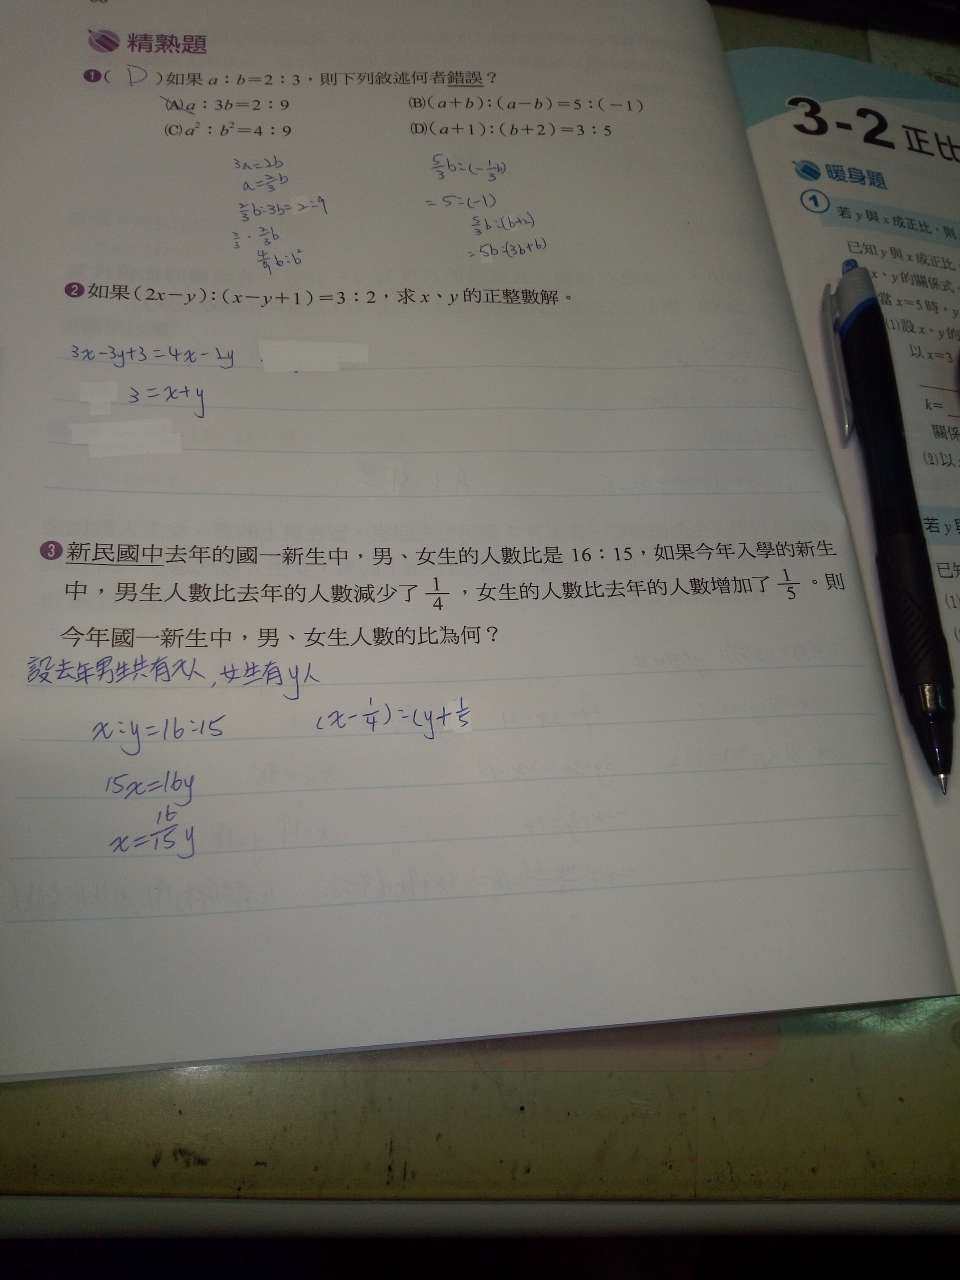 精熟題
❶ ( D ) 如果 a：b=2：3，則下列敘述何者錯誤？
(A) a：3b=2：9 (B) (a+b)：(a-b)=5：(-1)
(C) a²：b²=4：9 (D) (a+1)：(b+2)=3：5
3a=2b
a=2/3 b
2/3 b：3b=2：9
4/9 b：b²
5/3 b：(-1/3 b)
=5：(-1)
5/3 b：(b+2)
=5b：(3b+6)
❷ 如果 (2x-y)：(x-y+1)=3：2，求 x、y 的正整數解。
3x-3y+3=4x-2y
3=x+y
❸ 新民國中去年的國一新生中，男、女生的人數比是 16：15，如果今年入學的新生
中，男生人數比去年的人數減少了 1/4，女生的人數比去年的人數增加了 1/5。則
今年國一新生中，男、女生人數的比為何？
設去年男生共有x人，女生有y人
x：y=16：15 (x-1/4)：(y+1/5
15x=16y
x=16/15 y
3-2 正比
暖身題
1 若 y 與 x 成正比，則
已知 y 與 x 成正比
x、y 的關係式
當 x=5 時，y
(1) 設 x、y 的
以 x=3
k=
關係
(2) 以
若 y
已知
(1)